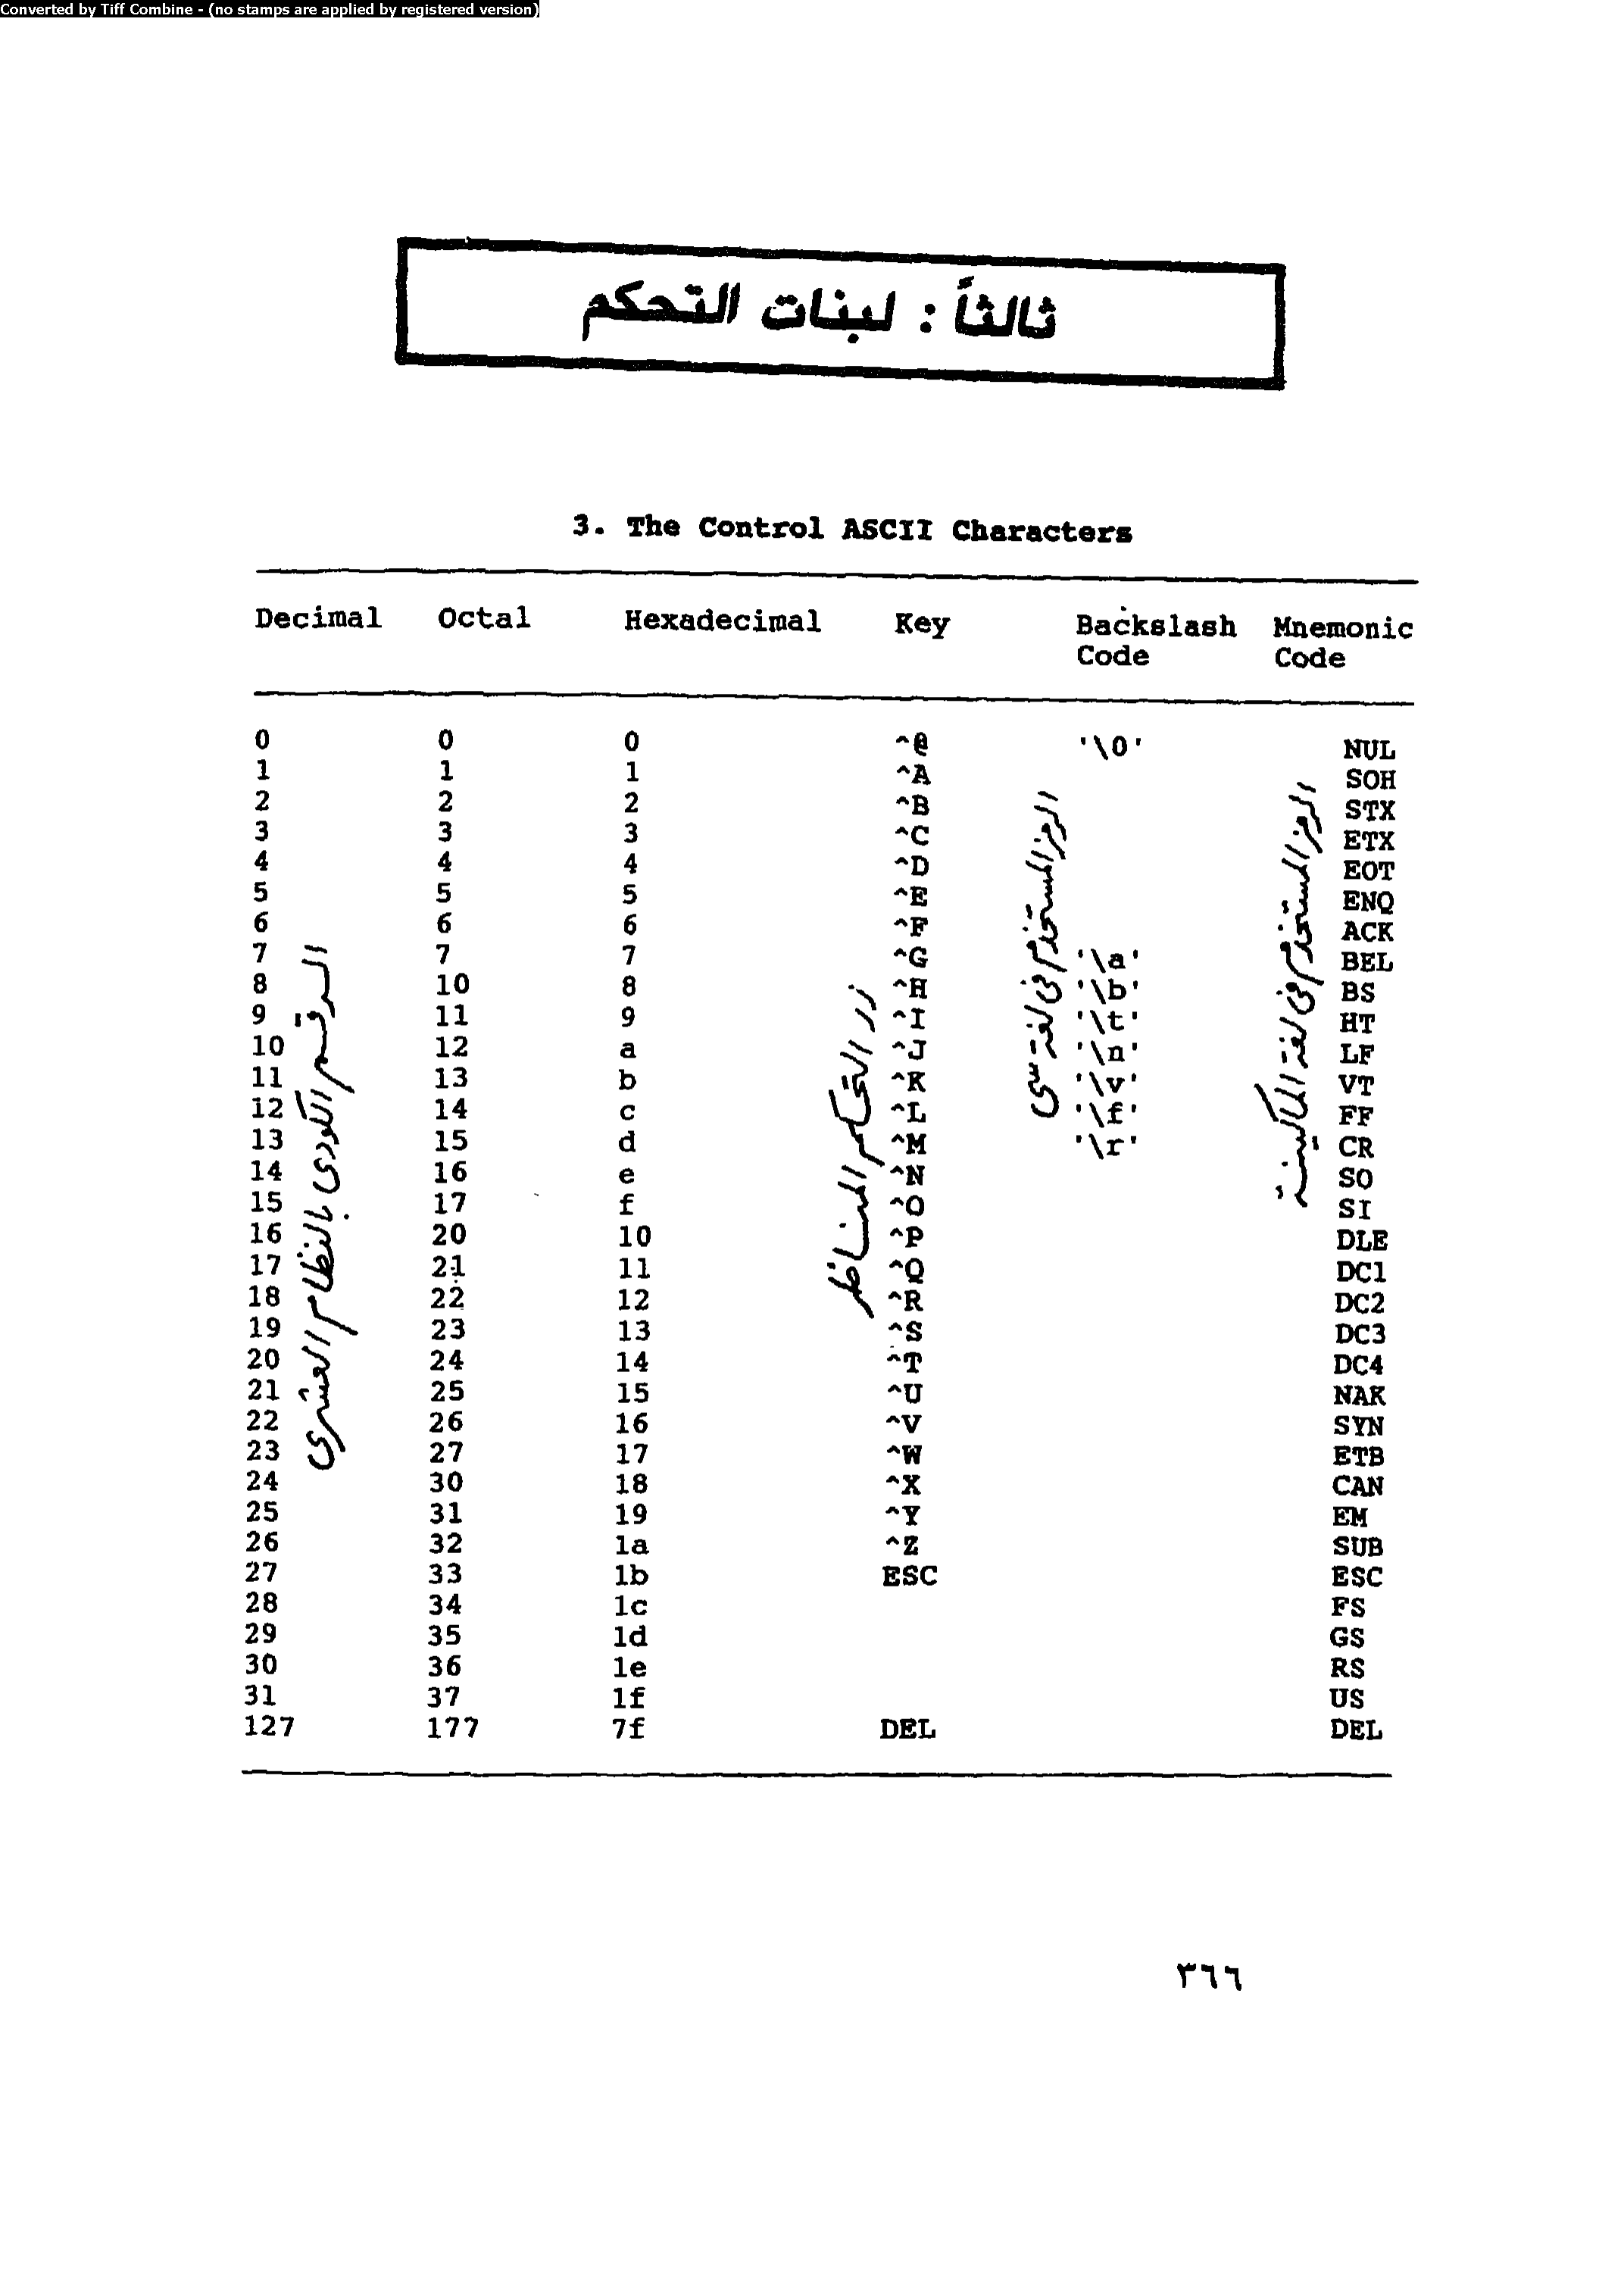 Converted by Tiff Combine - (no stamps are applied by registered version)
ثالثاً : لبنات التحكم
3. The Control ASCII Characters
Decimal Octal Hexadecimal Key Backslash Code Mnemonic Code
0 0 0 ^@ '\0' NUL
1 1 1 ^A SOH
2 2 2 ^B STX
3 3 3 ^C ETX
4 4 4 ^D EOT
5 5 5 ^E ENQ
6 6 6 ^F ACK
7 7 7 ^G '\a' BEL
8 10 8 ^H '\b' BS
9 11 9 ^I '\t' HT
10 12 a ^J '\n' LF
11 13 b ^K '\v' VT
12 14 c ^L '\f' FF
13 15 d ^M '\r' CR
14 16 e ^N SO
15 17 f ^O SI
16 20 10 ^P DLE
17 21 11 ^Q DC1
18 22 12 ^R DC2
19 23 13 ^S DC3
20 24 14 ^T DC4
21 25 15 ^U NAK
22 26 16 ^V SYN
23 27 17 ^W ETB
24 30 18 ^X CAN
25 31 19 ^Y EM
26 32 1a ^Z SUB
27 33 1b ESC ESC
28 34 1c FS
29 35 1d GS
30 36 1e RS
31 37 1f US
127 177 7f DEL DEL
الرقم الكودى بالنظام العشرى
زر التحكم المناظر
الرمز المستخدم فى لغة سى
الرمز المستخدم فى لغة الماكينة
٣٦٦